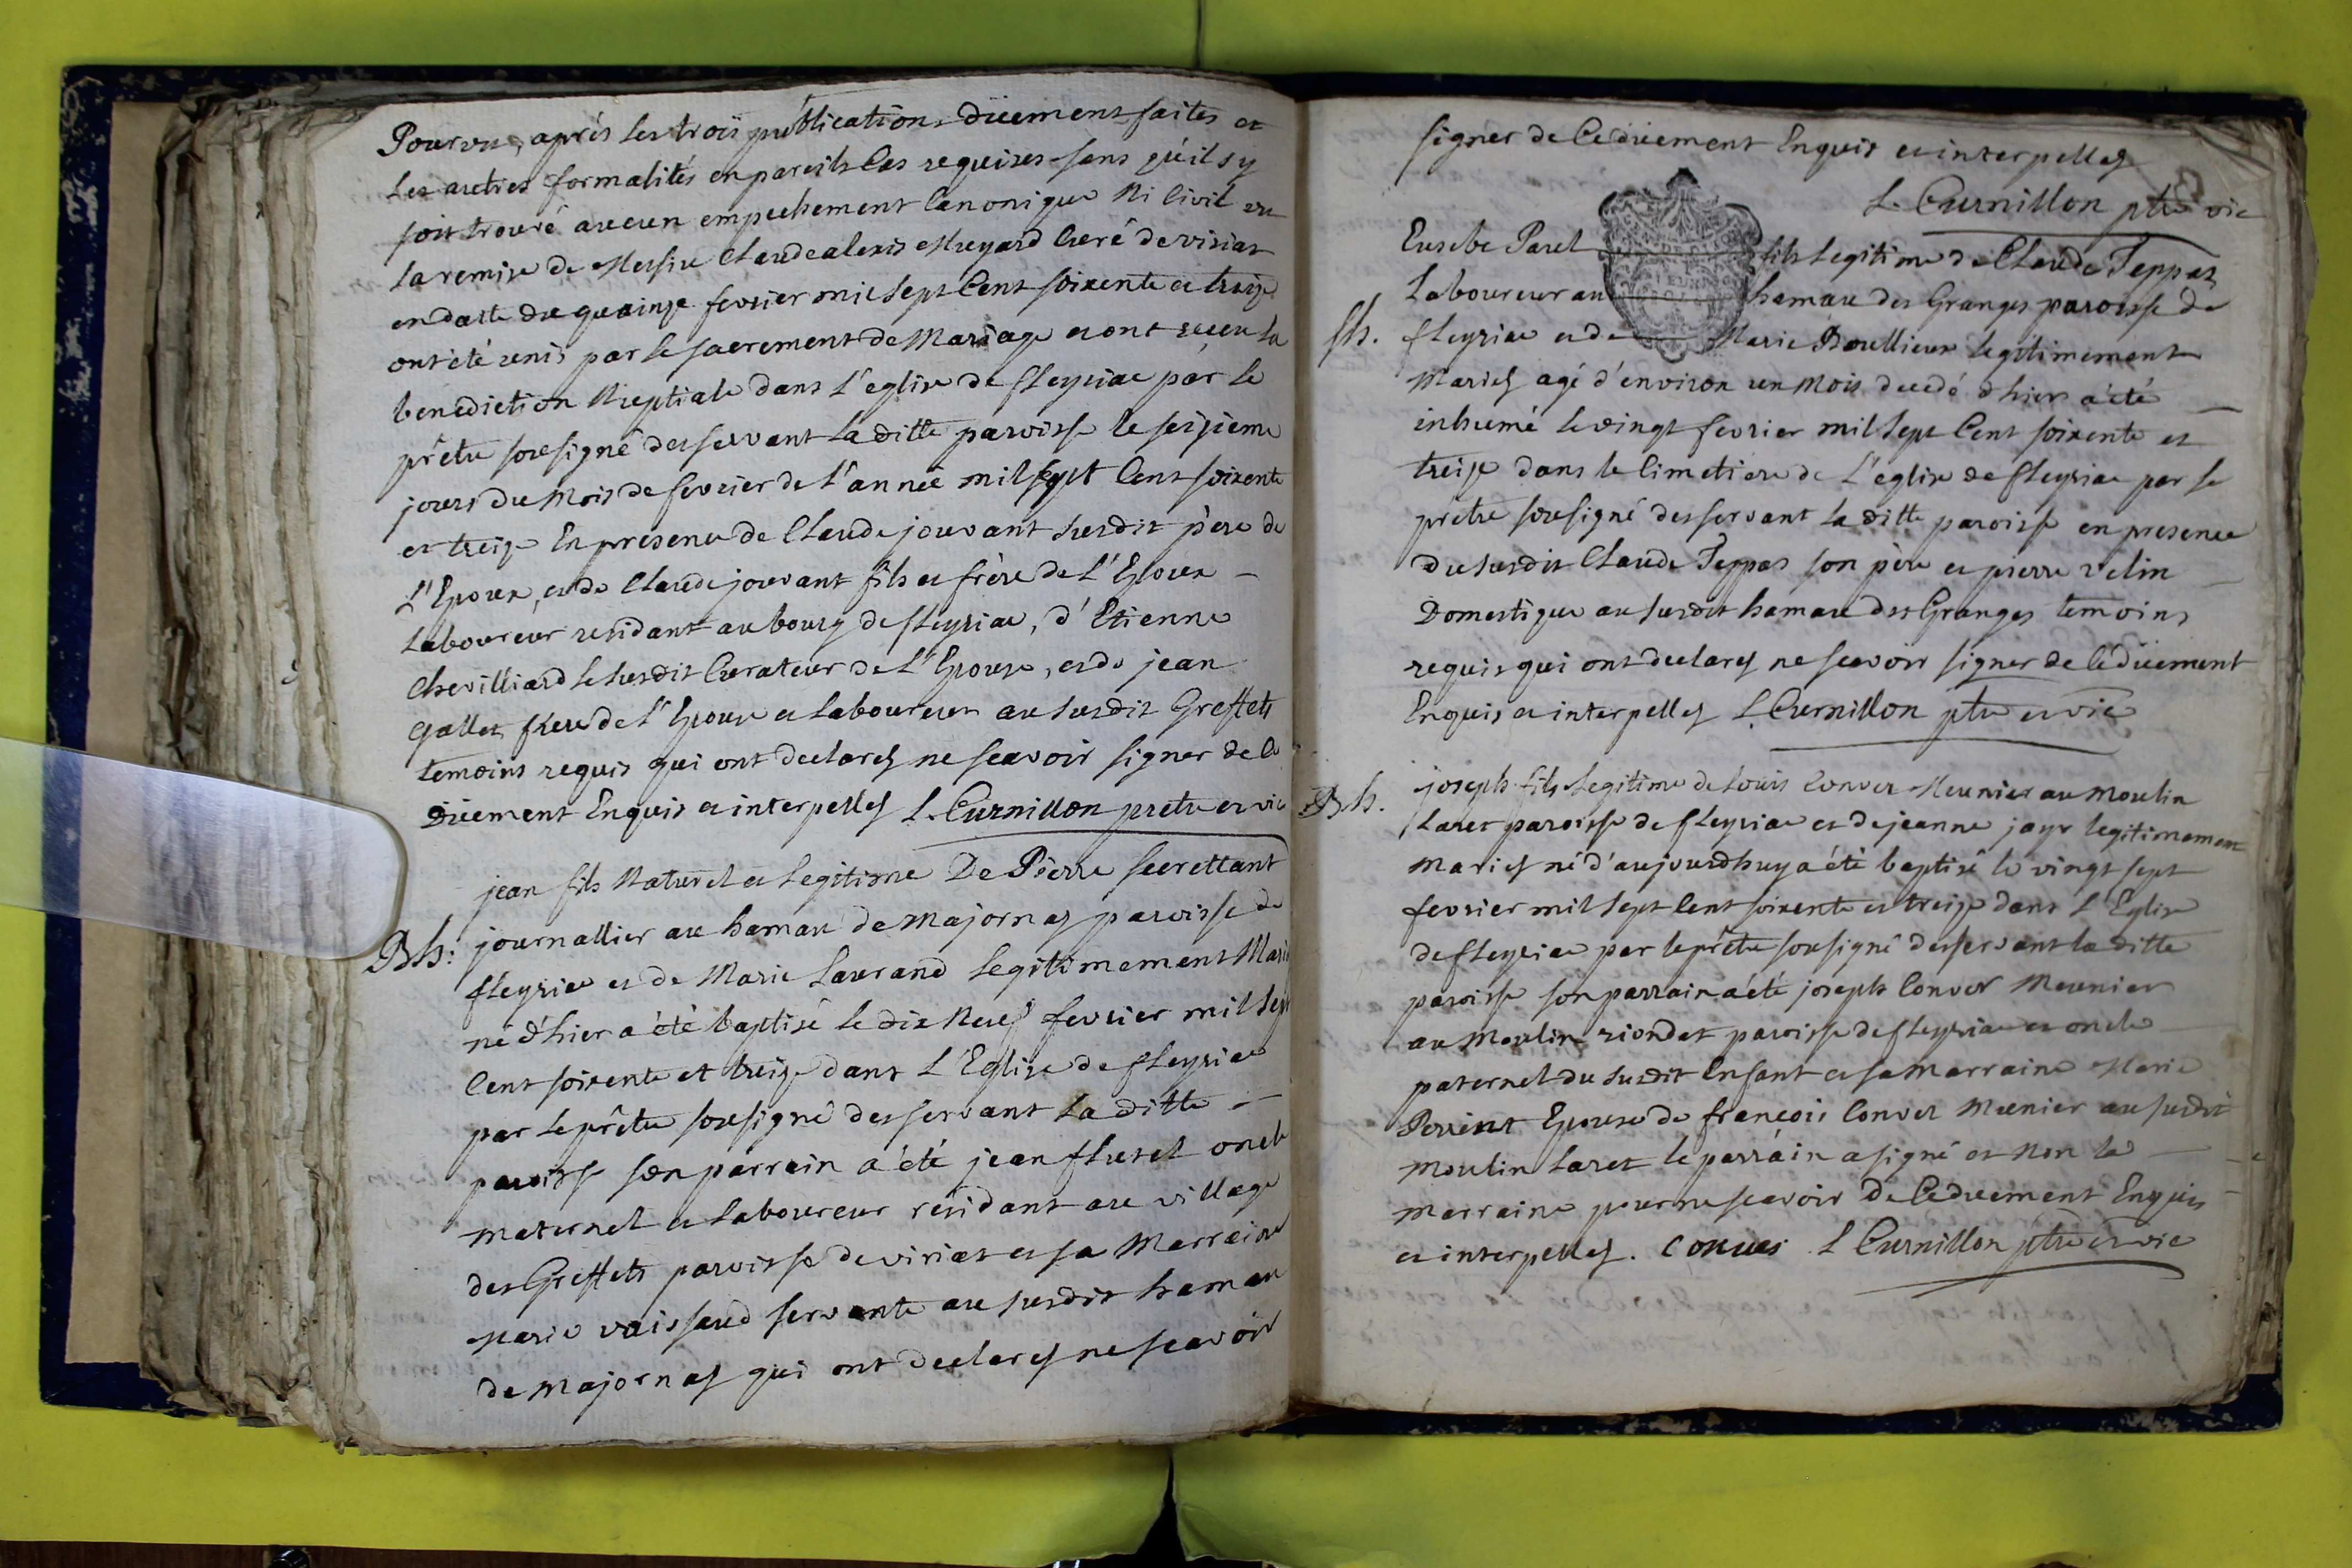 Pourvu, après les trois publications düement faites et
les autres formalités en pareils Cas requises sans qu'il s'y
soit trouvé aucun empechement Canonique Ni Civil vu
la remise de Messire Claude alexis Muyard Curé de viriat
en datte du quainze fevrier mil sept Cent soixente et treize
ont été unis par le sacrement de Mariage et ont reçeu la
benediction Nuptiale dans l'eglise de fleyriac par le
prêtre sousigné desservant la ditte paroisse le seizieme
jours du Mois de fevrier de l'année mil sept Cent soixente
et treize En presence de Claude jouvant susdit père de
L'Epoux, et de Claude jouvant fils et frère de L'Epoux –
Laboureur residant au bourg de fleyriac, d'Etienne
Chevilliard le susdit Curateur de L'Epouse, et de jean
Gallet frere de L'Epouse et laboureur au susdit Greffets
temoins requis qui ont declarés ne scavoir signer de Ce
Düement Enquis et interpellés L. Curnillon pretre et vic
jean fils Naturel et Legitime De Pierre secrettant
Bh: journallier au hamau de majornas paroisse de
fleyriac et de Marie Laurand legitimement Mariés
né d'hier a été baptisé le dix Neuf fevrier mil sept
Cent soixente et treize dans L'Eglise de fleyriac
par le prêtre sousigné desservant la ditte –
paroisse son parrain a été jean fluret oncle
maternel et laboureur residant au village
des Greffets paroisse de viriat et sa Marraine
marie vaissaud servante au susdit hamau
de majornas qui ont declarés ne scavoir
signer de Ce düement Enquis et interpellés
L. Curnillon ptre vic
Eusebe Parel fils Legitime de Claude Teppas
Laboureur au hamau des Granges paroisse de
fh. fleyriac et de Marie Boullieux legitimement
Mariés agé d'environ un Mois decedé d'hier a été
inhumé le vingt fevrier mil sept Cent soixente et
treize dans le Cimetiere de L'eglise de fleyriac par le
prêtre sousigné desservant la ditte paroisse en presence
du susdit Claude Teppas son père et pierre velin
Domestique au susdit hamau des Granges temoins
requis qui ont declarés ne scavoir signer de Ce Düement
Enquis et interpellés L. Curnillon ptre et vic
joseph fils Legitime de Louis Conver Meunier au moulin
Bh. Laret paroisse de fleyriac et de jeanne jayr legitimement
Mariés né d'aujourdhuy a été baptisé le vingt sept
fevrier mil sept Cent soixente et treize dans L'Eglise
de fleyriac par le prêtre sousigné desservant la ditte
paroisse son parrain a été joseph Conver Meunier
au Moulin riondet paroisse de fleyriac et oncle
paternel du susdit Enfant et sa marraine Marie
Perrint Epouse de françois Conver Meunier au susdit
moulin Laret le parrain a signé et Non la –
marraine pour ne scavoir de Ce duement Enquis
et interpellés. Convers L Curnillon ptre et vic